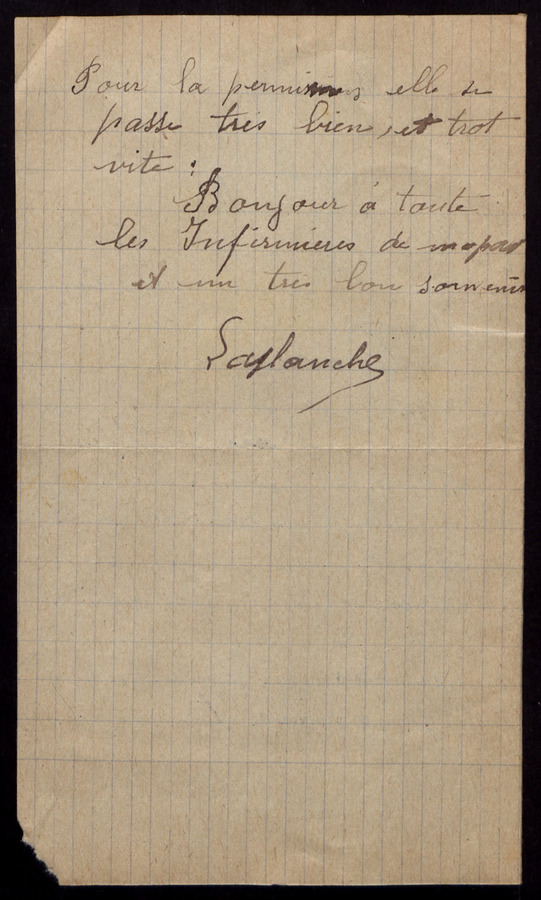 Pour la permission elle se
passe tres bien, et trot
vite :
Bonjour a toute
les Infirmieres de ma part
et un tres bon souvenir
Laplanche